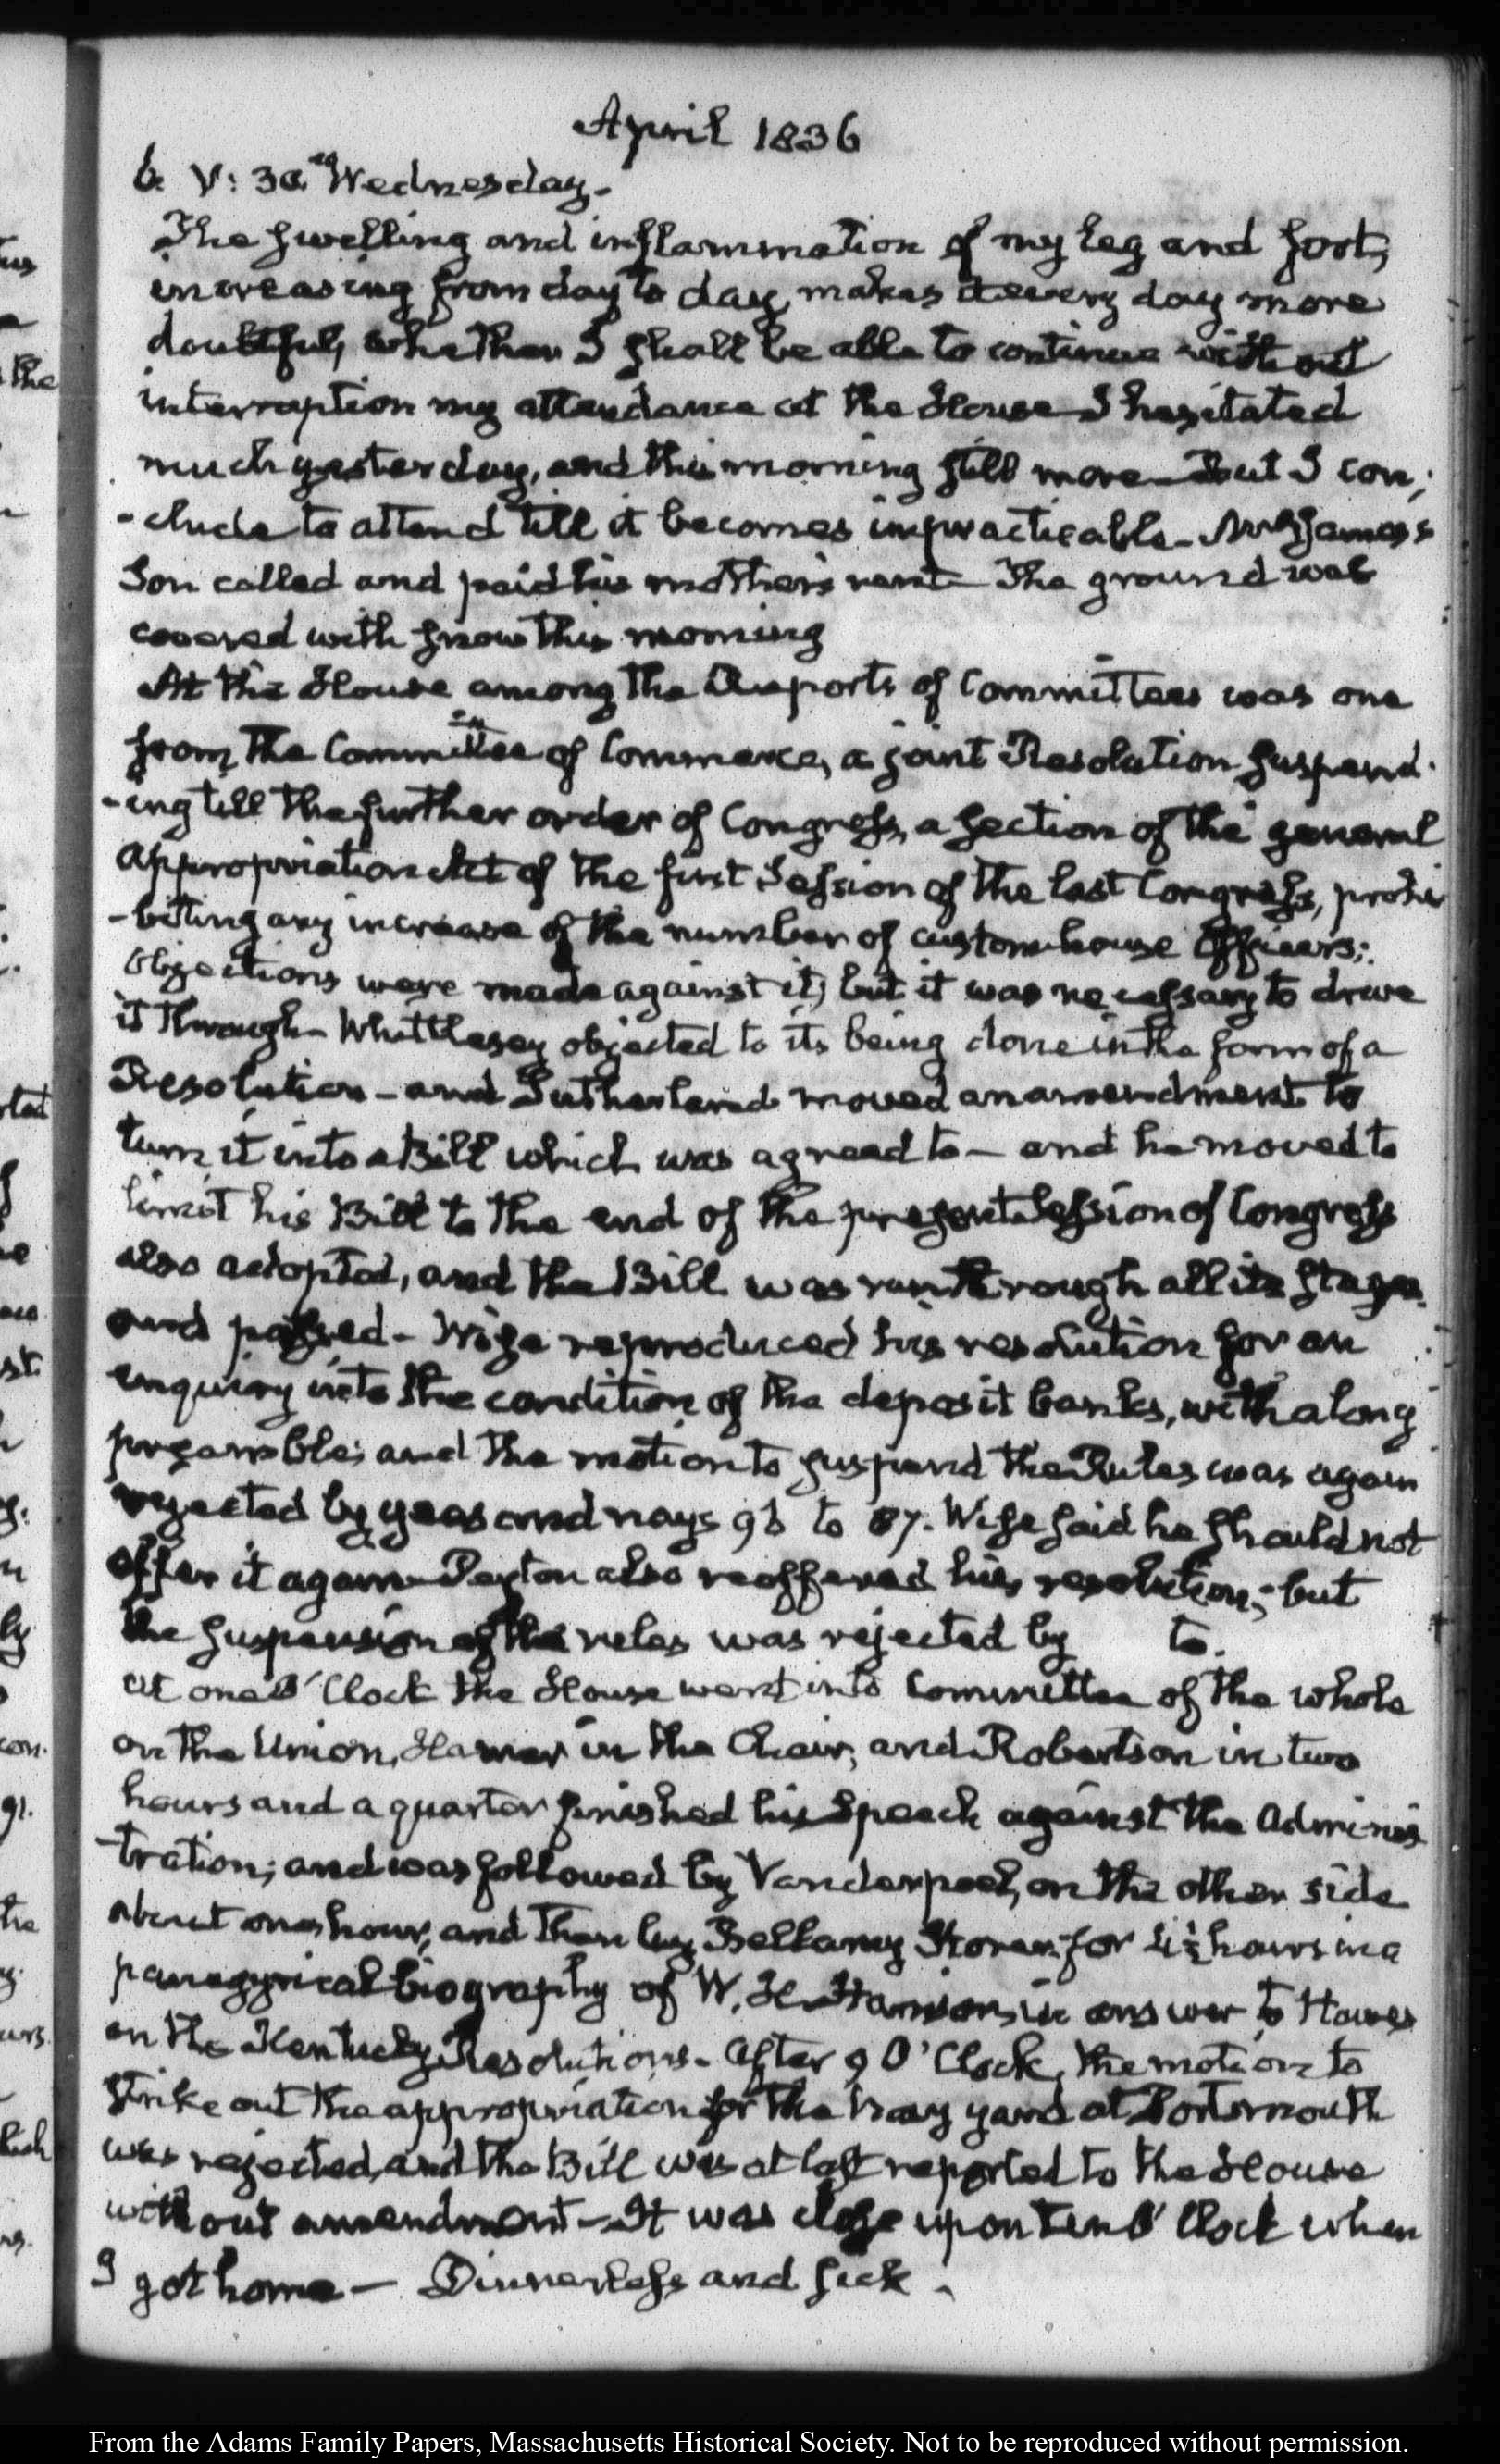 April 1836
6. V: 30. Wednesday.
The swelling and inflammation of my leg and foot,
increasing from day to day, makes it every day more
doubtful, whether I shall be able to continue without
interruption my attendance at the House I hesitated
much yesterday, and this morning still more — But I con-
-clude to attend till it becomes impracticable — James's
Son called and paid his mother's rent — The ground was
covered with snow this morning
At the House among the Reports of Committees was one
from the Committee of Commerce, a joint Resolution suspend-
-ing till the further order of Congress, a section of the general
appropriation Act of the first Session of the last Congress, prohi
-biting any increase of the number of custom house Officers;
objections were made against it, but it was necessary to drive
it through — Whittlesey objected to its being done in the form of a
Resolution — and Sutherland moved an amendment to
turn it into a Bill which was agreed to — and he moved to
limit his Bill to the end of the present Session of Congress
also adopted, and the Bill was run through all its stages
and passed — Wise reproduced his resolution for an
enquiry into the condition of the deposit banks, with a long
preamble; and the motion to suspend the Rules was again
rejected by yeas and nays 96 to 87. Wise said he should not
offer it again — Peyton also reoffered his resolution; but
the suspension of the rules was rejected by to.
at one O'Clock the House went into Committee of the whole
on the Union, Hamer in the Chair, and Robertson in two
hours and a quarter finished his Speech against the Adminis
-tration; and was followed by Vanderpoel, on the other side
about one hour, and then by Bellamy Storer for 4½ hours in a
panegyrical biography of W. H. Harrison, in answer to Hawes
on the Kentucky Resolutions — After 9 O'Clock, the motion to
strike out the appropriation for the Navy yard at Portsmouth
was rejected, and the Bill was at last reported to the House
without amendment — It was close upon ten O'Clock when
I got home — Dinnerless and sick.
the
From the Adams Family Papers, Massachusetts Historical Society. Not to be reproduced without permission.